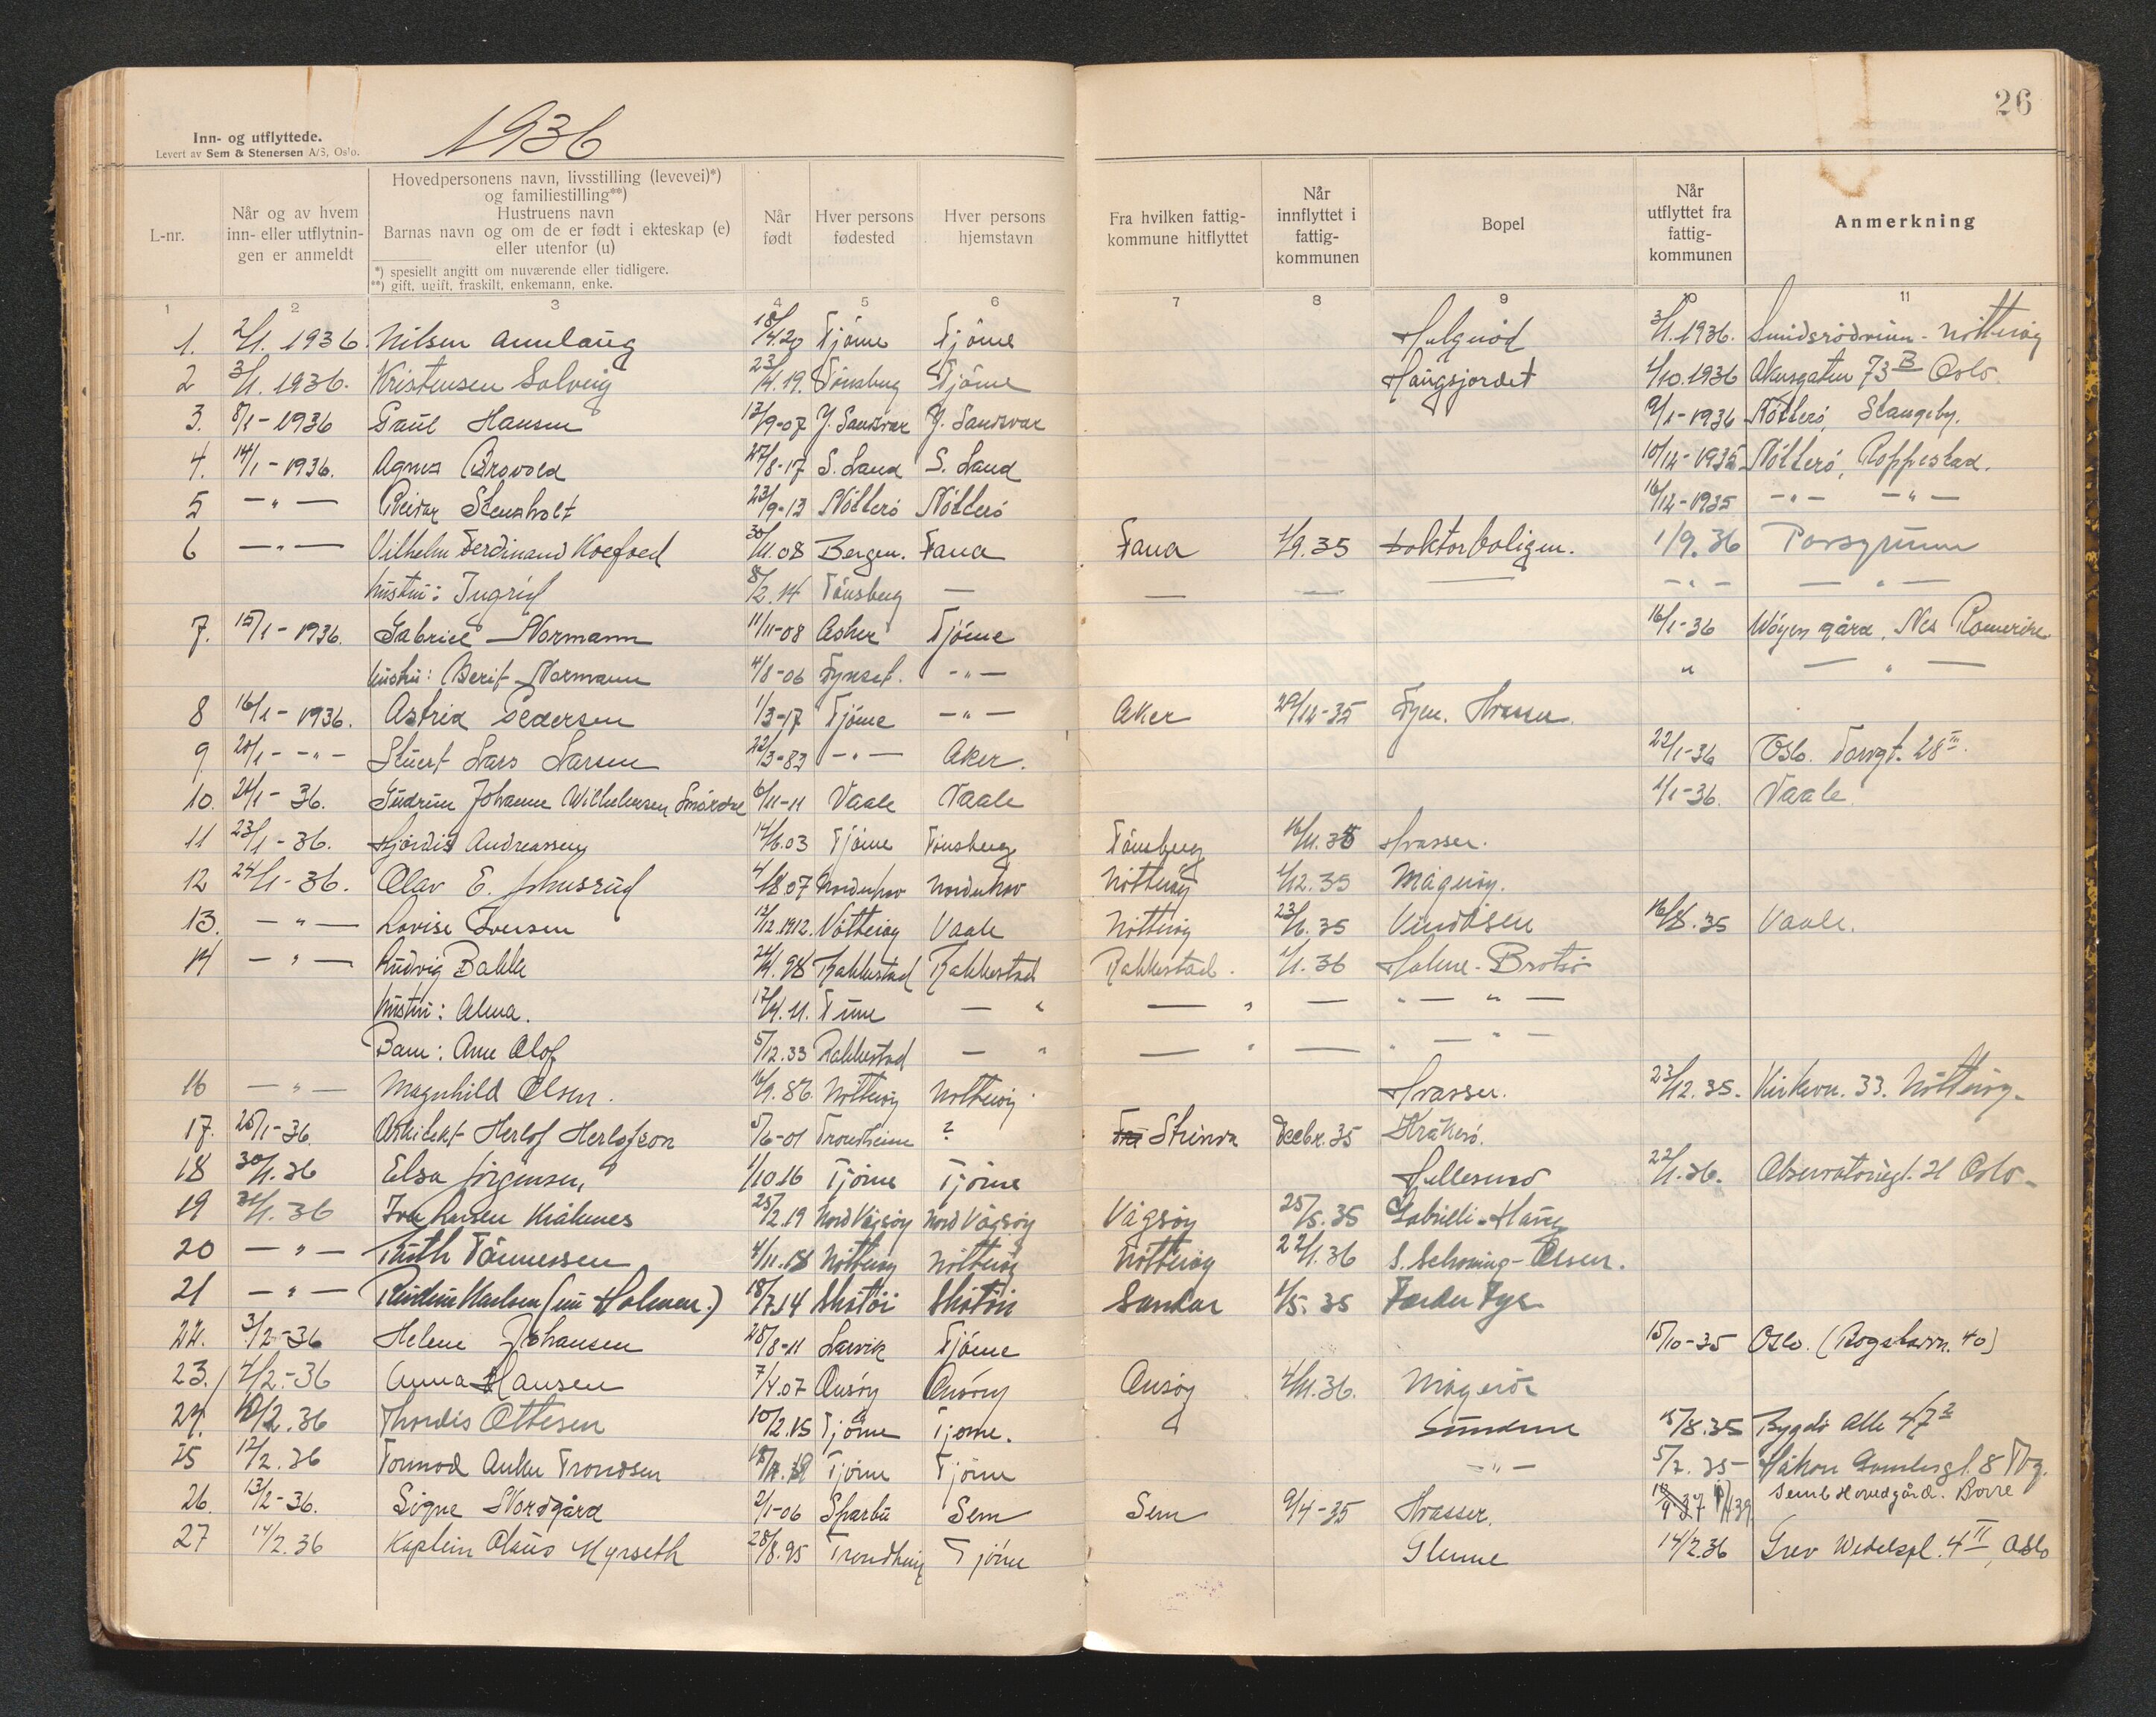 26
1936
Inn- og utflyttede.
Levert av Sem & Stenersen A/S, Oslo.
L-nr.
Når og av hvem inn- eller utflytnin-gen er anmeldt
Hovedpersonens navn, livsstilling (levevei)*) og familiestilling**)
Hustruens navn
Barnas navn og om de er født i ekteskap (e) eller utenfor (u)
*) spesiellt angitt om nuværende eller tidligere.
**) gift, ugift, fraskilt, enkemann, enke.
Når født
Hver persons fødested
Hver persons hjemstavn
Fra hvilken fattig-kommune hitflyttet
Når innflyttet i fattig-kommunen
Bopel
Når utflyttet fra fattig-kommunen
Anmerkning
1 2 3 4 5 6 7 8 9 10 11
1. 2/1. 1936. Nilsen Annlaug 18/4.20 Tjöme Tjöme 3/1.1936. Smidsrödveien - Nötteröy
2 3/1. 1936. Kristensen Solveig 23/4.19. Tönsberg Tjöme Haugsjordet 1/10.1936 Akersgaten 73 B Oslo.
3. 8/1-1936 Paul Hansen 13/9-07 Y. Sandsvær Y. Sandsvær 9/1-1936 Nötterö, Stangeby.
4. 14/1-1936. Agnes Brovold 27/8-17 S. Land S. Land 10/12-1935 Nötterö, Roppestad.
5 -"- Reidar Stensholt 23/9-13 Nötterö Nötterö 16/12-1935 -"- -"-
6 -"- Vilhelm Ferdinand Koefoed 30/11.08 Bergen. Fana Fana 1/9.35 Doktorboligen. 1/9.36 Porsgrunn
hustru: Ingrid 8/2.14 Tönsberg — — — — -"- — " —
7. 15/1-1936. Gabriel Normann 11/11-08 Asker Tjöme 16/1-36 Wöyen gård, Nes Romerike
hustru: Berit Normann 4/8-06 Tynset. -"- " — " —
8 16/1-1936. Astrid Pedersen 1/3-17 Tjöme -"- Aker 29/12-35 Fyen. Hvasser.
9 20/1- -"- Stuert Lars Larsen 22/3-83 -"- Aker. 22/1-36 Oslo. Torvgt. 28 III.
10. 21/1-36. Gudrun Johanne Wilhelmsen Smørdal 6/11-11 Vaale Vaale 1/1-36. Vaale
11 23/1-36. Hjördis Andreassen 14/6.03 Tjöme Tönsberg Tönsberg 16/11.35 Hvasser.
12 24/1-36. Olav E. Johnsrud 4/8.07 Norderhov Norderhov Nötteröy 1/12.35 Mågeröy.
13. -"- Lovise Iversen 13/12.1912. Nötteröy Vaale Nötteröy 23/6.35 Vindåsen 16/8.35 Vaale.
14 -"- Ludvig Bakke 24/4.98 Rakkestad Rakkestad Rakkestad. 1/1.36 Holme-Brotsö
hustru: Alma. 17/4.11. Tune — " — " — " — " —
Barn: Anne Olof 5/12.33 Rakkestad — " — " — " — " —
16 -"- Magnhild Olsen. 16/9.86. Nötteröy Nötteröy. Hvasser. 23/12.35. Kirkevn. 33. Nötteröy.
17. 25/1-36. Arkitekt Herlof Herlofson 5/6-01 Trondheim ? Strinda Decbr. 35 Kråkerö.
18 30/1.36 Elsa Jörgensen 1/10.16 Tjöme Tjöme 22/1.36. Observatoriegt. Oslo
19 31/1.36 Larsen 25/2.19 Nord Vågsöy Nord Vågsöy Vågsöy 25/5.35 Gabrielli-Haug
20 -"- Ruth Tönnessen 4/11.18 Nötteröy Nötteröy Nötteröy 22/1.36 S. Schöning-Olsen.
21 -"- Karlsen (f. Holmen.) 18/7.14 Skåtöi Skåtöi Sandar 1/5.35 Færder Fyr
22. 3/2-36 Helene Johansen 25/8-11 Larvik Tjöme 15/10-35 Oslo. (Rogalandsvn. 40)
23. 4/2-36 Anna Hansen 7/4.07 Onsöy Onsöy Onsöy 4/11.36. Mågerö
24. 10/2.36 Thordis Ottesen 10/2.15 Tjöme Tjöme. Sundene 15/8.35 Bygdö Alle 47 2
25 12/2.36 Tormod Anker Trondsen Tjöme Tjöme -"- 5/2.35 Håkon Gamlesgt. 8 Tbg.
26. 13/2-36. Signe Nordgård 2/1-06 Sparbu Sem Sem 9/4-35 Hvasser. Semb Hovedgård. Borre
27 14/2.36 Kaptein Olaus Myrseth 28/8.95 Trondheim Tjöme Glenne 14/2.36 Grev Wedelspl. 4 II, Oslo